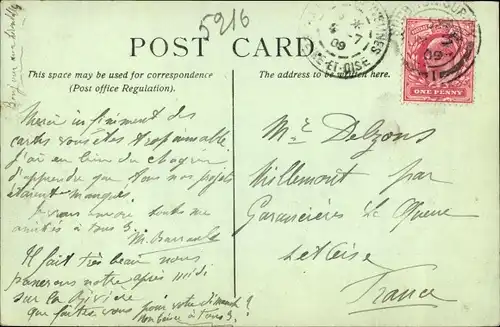 5916
POST CARD.
This space may be used for correspondence
(Post office Regulation).
The address to be written here.
ONE PENNY
09
09
ET-OISE
Merci infiniment des
cartes vous êtes trop aimable
j'ai eu bien du chagrin
d'apprendre que tous nos projets
étaient manqués
Je vous envoie toutes mes
amitiés à tous 3.
Il fait très beau nous
passerons notre après midi
sur la rivière
que faites vous pour votre dimanche?
à tous 3.
Mr Delzons
Millemont par
Garancières La Queue
Set Oise
France